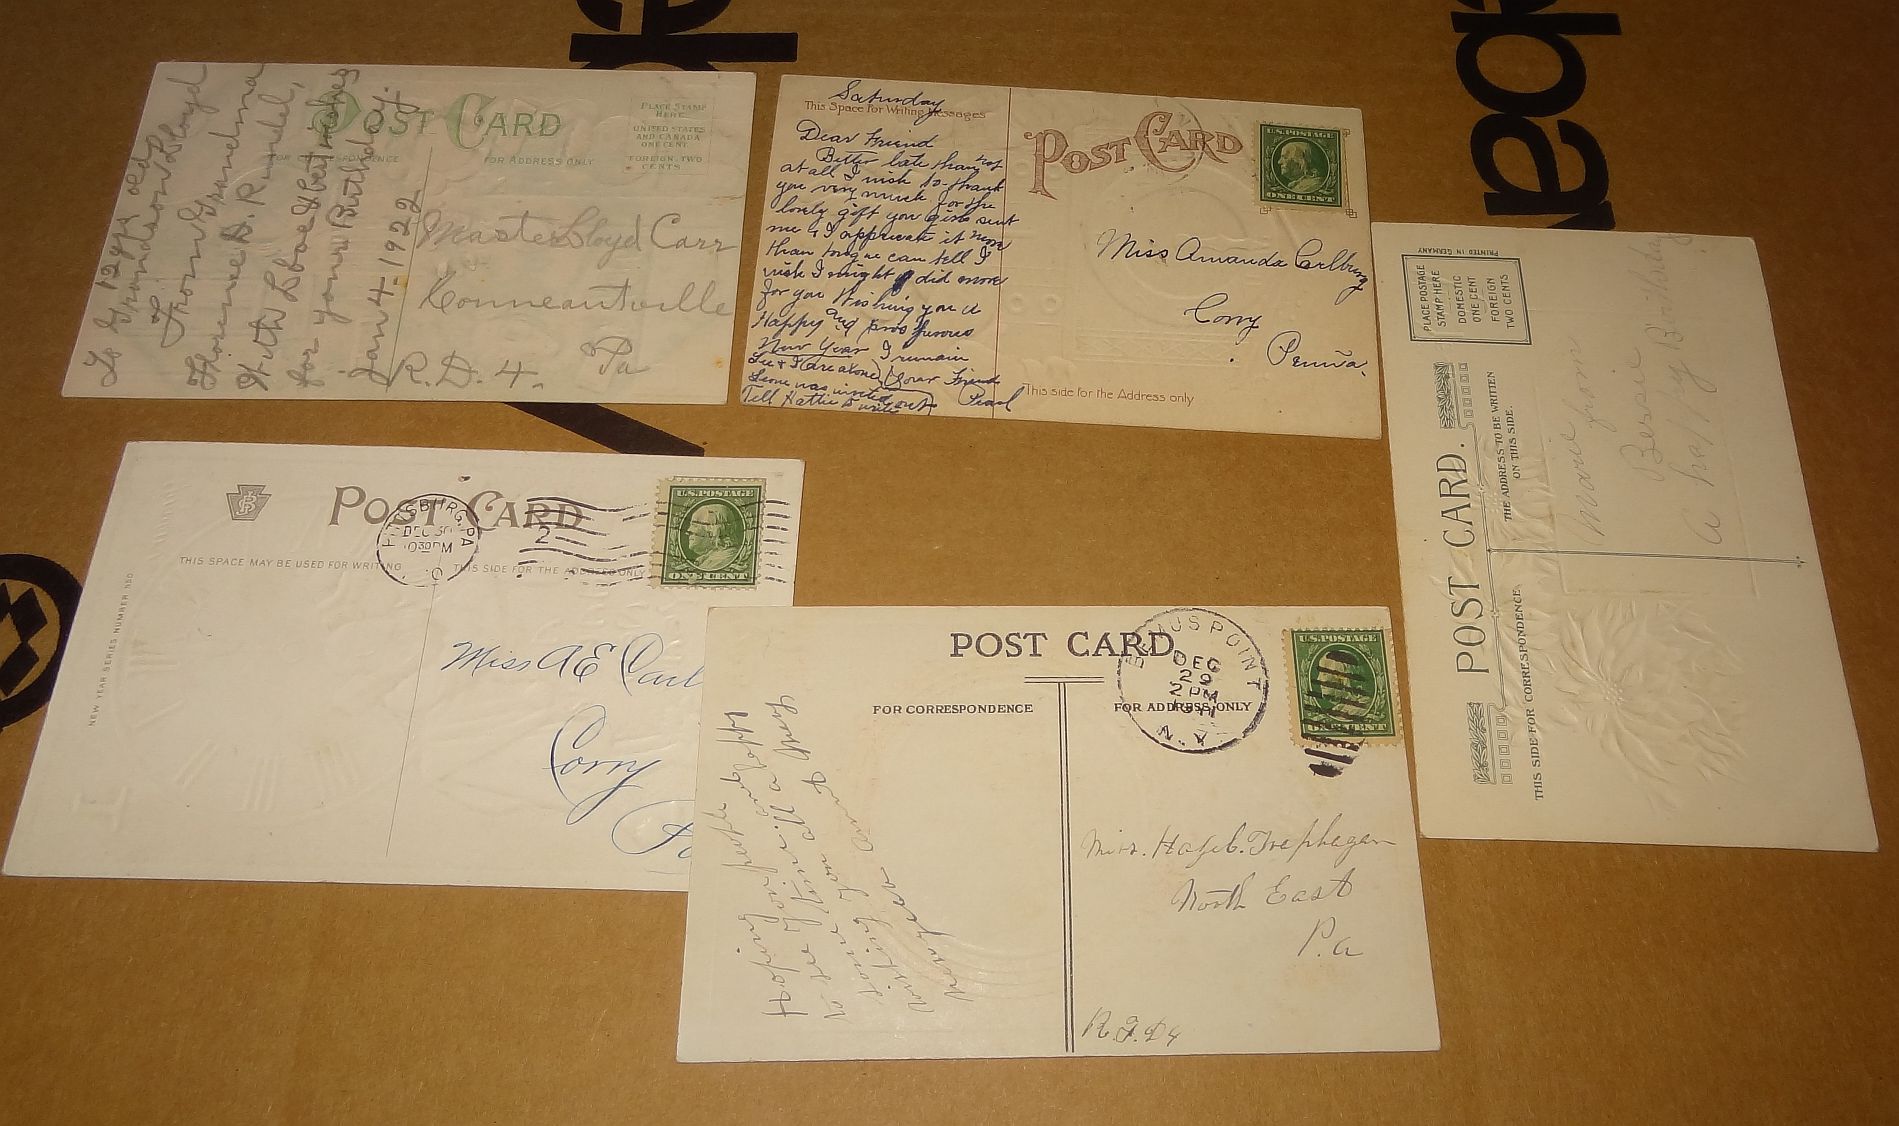 POST CARD
PLACE STAMP
HERE
UNITED STATES
AND CANADA
ONE CENT
FOREIGN, TWO
CENTS
FOR CORRESPONDENCE
FOR ADDRESS ONLY
To G, 12 yr old
Grandson Lloyd
From Grandma
With Love & best wishes
for your Birthday.
Jan 4-1922
Master Lloyd Carr
Conneautville
R.D. 4. Pa
Saturday
This Space for Writing Messages
Dear Friend
Better late than not
at all I wish to thank
you very much for the
lovely gift you girls sent
me & I appreciate it more
than tongue can tell I
wish I might did more
for you Wishing you a
Happy and prosperous
New Year I remain
Your Friend
Pearl
Lee & I are alone
Leone was invited out
Tell Hattie to write
POST CARD
U.S. POSTAGE
ONE CENT
Miss Amanda Carlburg
Corry
Penna.
This side for the Address only
PRINTED IN GERMANY
PLACE POSTAGE
STAMP HERE
DOMESTIC
ONE CENT
FOREIGN
TWO CENTS
POST CARD.
THE ADDRESS TO BE WRITTEN
ON THIS SIDE.
THIS SIDE FOR CORRESPONDENCE
Marie from
Bessie
a happy Birthday
POST CARD
THIS SPACE MAY BE USED FOR WRITING
THIS SIDE FOR THE ADDRESS ONLY
NEW YEAR SERIES NUMBER
PITTSBURG, PA
DEC 30
1030 PM
2
U.S. POSTAGE
ONE CENT
Miss A E Carl
Corry
Pa
POST CARD
FOR CORRESPONDENCE
FOR ADDRESS ONLY
BEMUS POINT
DEC
29
2 PM
N.Y.
U.S. POSTAGE
ONE CENT
Hoping
to see you
wishing you all a Happy
New Year
Trephagan
North East
Pa
R.F.D 4